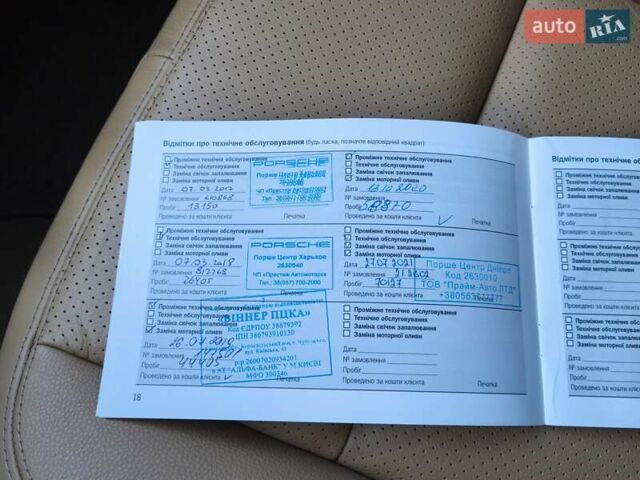 auto RIA
.com
Відмітки про технічне обслуговування (будь ласка, позначте відповідний квадрат)
Проміжне технічне обслуговування
Технічне обслуговування
Заміна свічок запалювання
Заміна моторної оливи
Дата 07.03.2017
№ замовлення
Пробіг 13150
Проведено за кошти клієнта Печатка
PORSCHE
Порше Центр Харьков
2630040
ЧП «Престиж Автомоторс»
Тел.: 38(057) 700-2000
Проміжне технічне обслуговування
Технічне обслуговування
Заміна свічок запалювання
Заміна моторної оливи
Дата 07.03.2018
№ замовлення
Пробіг 26405
Проведено за кошти клієнта Печатка
PORSCHE
Порше Центр Харьков
2630040
ЧП «Престиж Автомоторс»
Тел.: 38(057) 700-2000
Проміжне технічне
Технічне обслуговування
Заміна свічок
Заміна моторної
Дата
№ замовлення
Пробіг 44405
Проведено за кошти клієнта
«ВІННЕР ПЦКА»
Код ЄДРПОУ 38679392
ІПН 386793910130
вул. Київська, 43
р/р 26007020934201
в АТ «АЛЬФА-БАНК» У М.КИЄВІ
МФО 300346
Проміжне технічне обслуговування
Технічне обслуговування
Заміна свічок запалювання
Заміна моторної оливи
Дата
№ замовлення
Пробіг
Проведено за кошти клієнта Печатка
Проміжне технічне обслуговування
Технічне обслуговування
Заміна свічок запалювання
Заміна моторної оливи
Дата 27.07.2021
№ замовлення
Пробіг 70127
Проведено за кошти клієнта Печатка
Порше Центр Дніпро
Код 2630010
ТОВ "Прайм-Авто ЛТД"
Проміжне технічне обслуговування
Технічне обслуговування
Заміна свічок запалювання
Заміна моторної оливи
Дата
№ замовлення
Пробіг
Проведено за кошти клієнта Печатка
18
Відмітки про технічне об
Проміжне те
Технічне об
Заміна свічо
Заміна мото
Дата
№ замовлення
Пробіг
Проведено за ко
Проміжне т
Технічне об
Заміна свіч
Заміна мот
Дата
№ замовлення
Пробіг
Проведено за ко
Проміжне
Технічне о
Заміна сві
Заміна мо
Дата
№ замовленн
Пробіг
Проведено за к